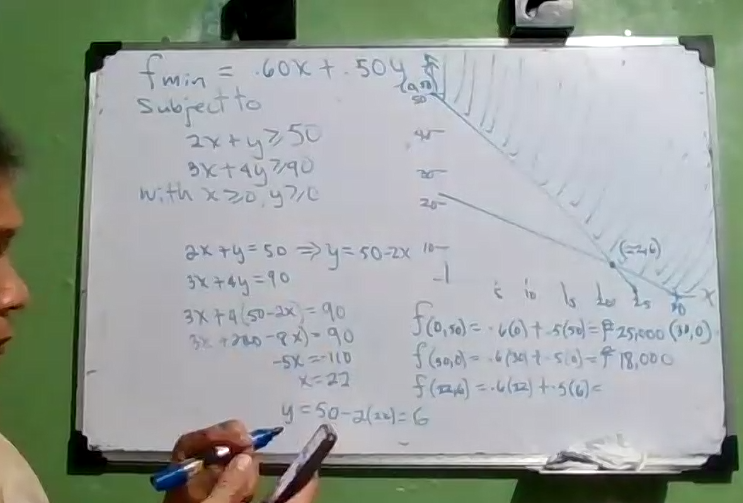 fmin = .60x + .50y
Subject to
2x + y ≥ 50
3x + 4y ≥ 90
with x ≥ 0, y ≥ 0
2x + y = 50 ⇒ y = 50 - 2x
3x + 4y = 90
3x + 4(50 - 2x) = 90
3x + 200 - 8x) = 90
-5x = -110
x = 22
y = 50 - 2(22) = 6
(0,50)
50
40
30
20
10
(22,6)
5 10 15 20 25 30 x
(30,0)
f(0,50) = .6(0) + .5(50) = ₱25,000
f(30,0) = .6(30) + .5(0) = ₱18,000
f(22,6) = .6(22) + .5(6) =